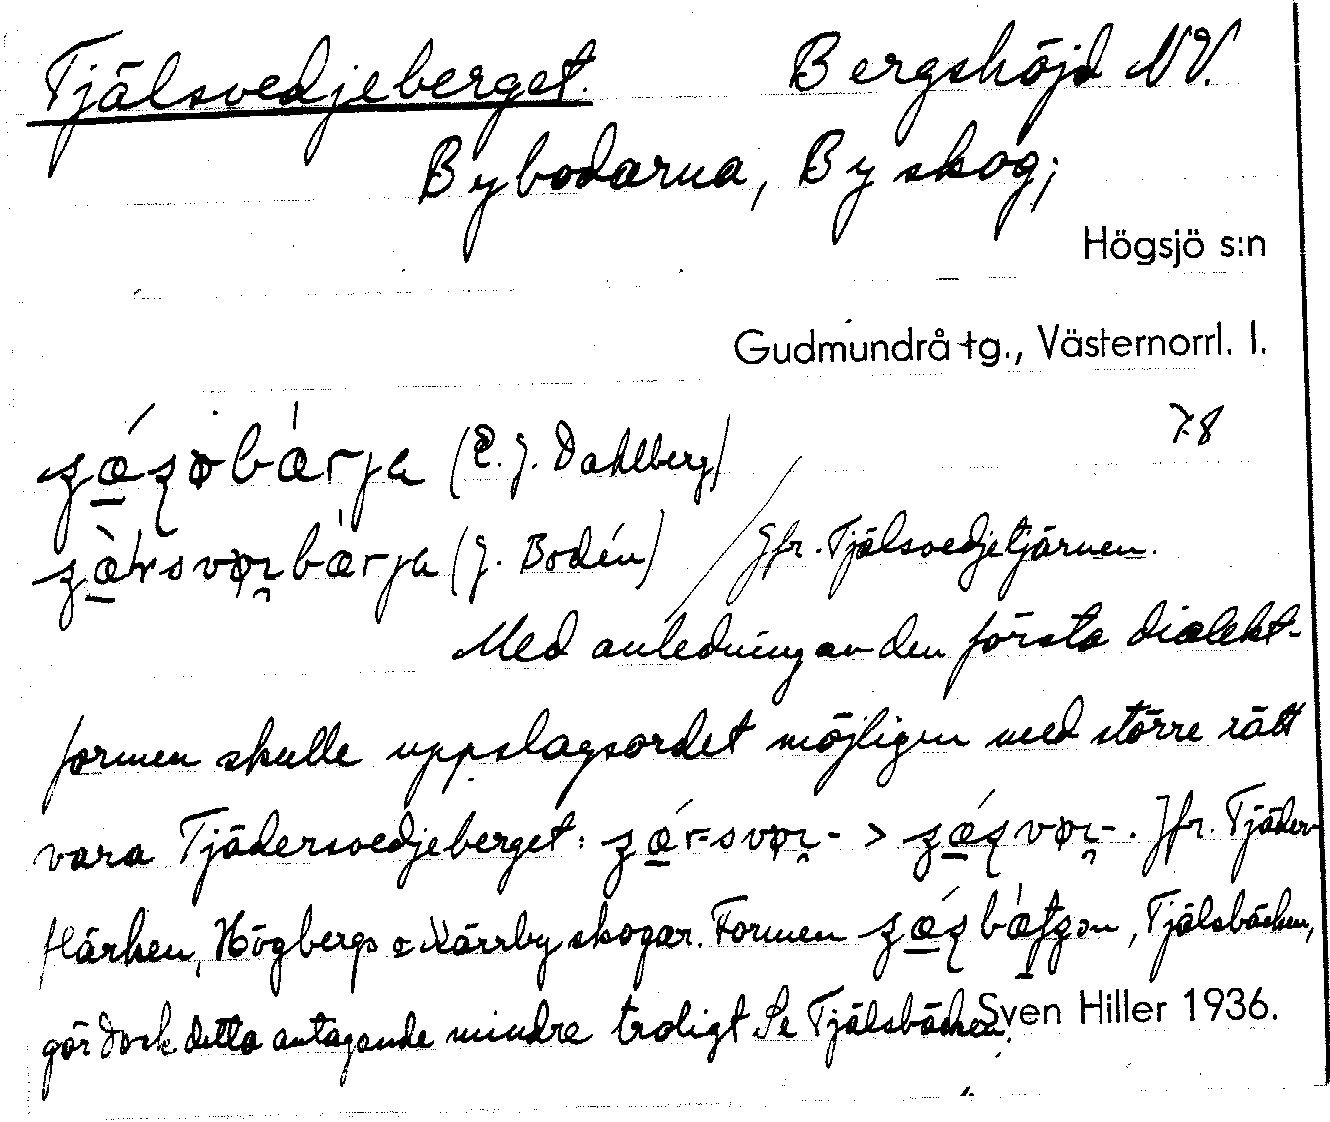 Tjälsvedjeberget. Bergshöjd NV.
Bybodarna, By skog;
Högsjö s:n
Gudmundrå tg., Västernorrl. l.
78
(E. J. Dahlberg)
(J. Bodén) Jfr. Tjälsvedjetjärnen.
Med anledning av den första dialekt-
formen skulle uppslagsordet möjligen med större rätt
vara Tjädersvedjeberget: > . Jfr. Tjäder-
kärken, Högbergs o Kärrby skogar. Formen , Tjälsbäcken,
gör dock detta antagande mindre troligt. Se Tjälsbäcken.
Sven Hiller 1936.